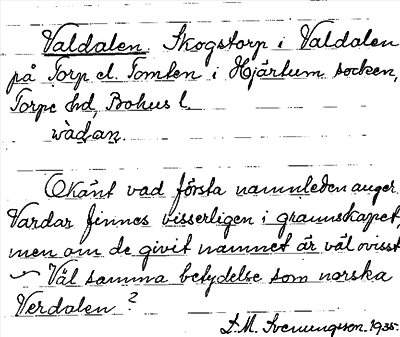 Valdalen. Skogstorp i Valdalen
på Torp el. Tomten i Hjärtum socken,
Torpe hd, Bohus l.
wàdan.
Okänt vad första namnleden anger.
Vardar finnes visserligen i grannskapet,
men om de givit namnet är väl ovisst
Väl samma betydelse som norska
Verdalen?
S.M. Svenungsson. 1935.